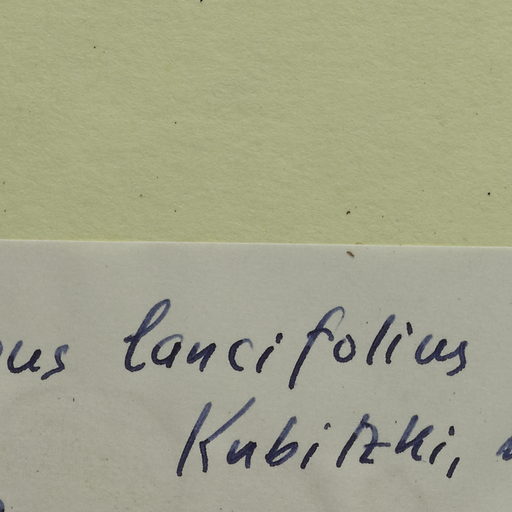 us lancifolius
Kubitzki,